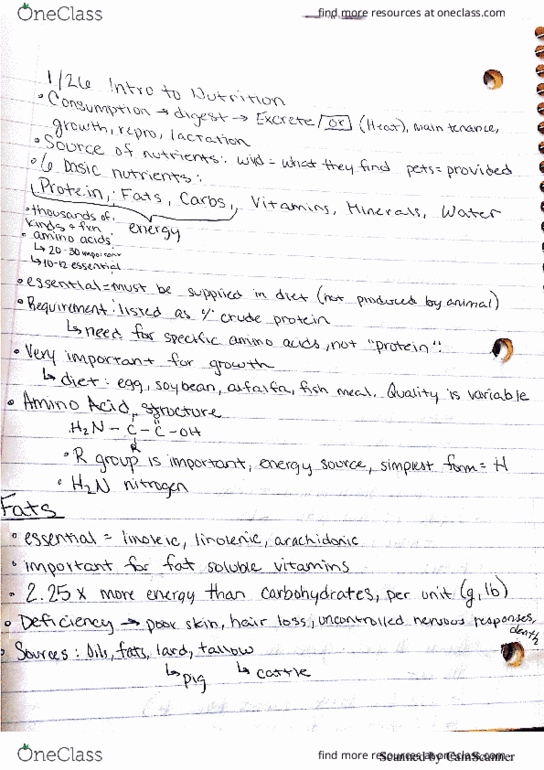 OneClass
find more resources at oneclass.com
1/26 Intro to Nutrition
• Consumption → digest → Excrete/or (Heat), maintenance,
growth, repro, lactation
• Source of nutrients: wild = what they find pets = provided
• 6 basic nutrients:
Protein, Fats, Carbs, Vitamins, Minerals, Water
• thousands of
kinds + fxn
energy
• amino acids
↳ 20-30 important
↳ 10-12 essential
• essential = must be supplied in diet (not produced by animal)
• Requirement: listed as % crude protein
↳ need for specific amino acids, not "protein"
• Very important for growth
↳ diet: egg, soybean, alfalfa, fish meal. Quality is variable
• Amino Acid structure
H₂N - C - C - OH
R
• R group is important, energy source, simplest form = H
• H₂N nitrogen
Fats
• essential = linoleic, linolenic, arachidonic
• important for fat soluble vitamins
• 2.25 x more energy than carbohydrates, per unit (g, lb)
• Deficiency → poor skin, hair loss, uncontrolled nervous responses,
death
• Sources: Oils, fats, lard, tallow
↳ pig ↳ cattle
OneClass
find more resources at oneclass.com
Scanned by CamScanner